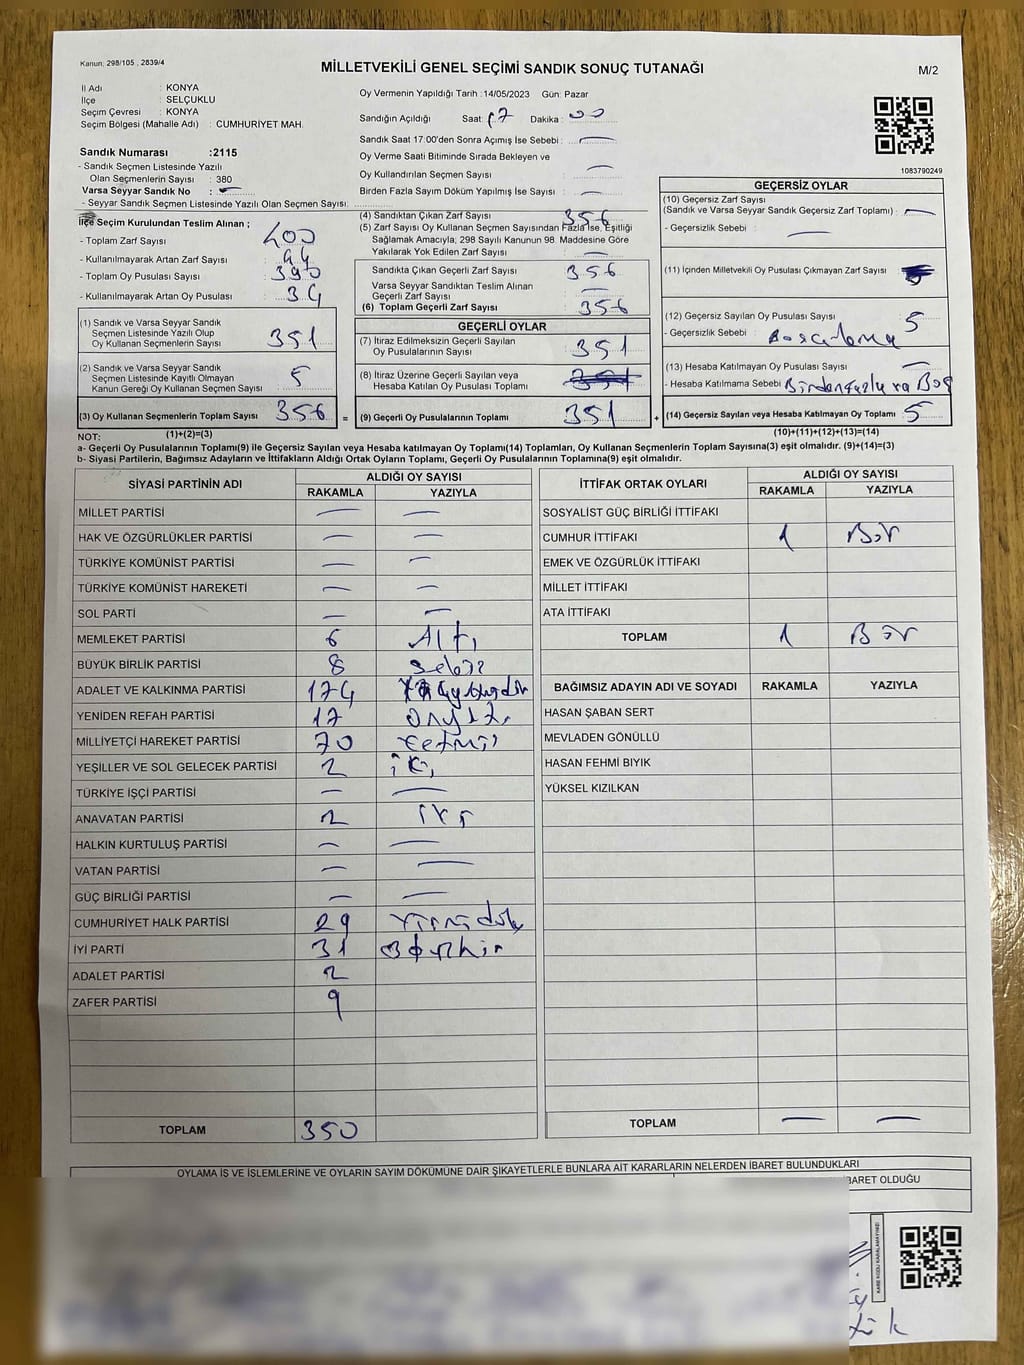 Kanun: 298/105 , 2839/4
MİLLETVEKİLİ GENEL SEÇİMİ SANDIK SONUÇ TUTANAĞI
M/2
İl Adı : KONYA
İlçe : SELÇUKLU
Seçim Çevresi : KONYA
Seçim Bölgesi (Mahalle Adı) : CUMHURİYET MAH.
Sandık Numarası :2115
- Sandık Seçmen Listesinde Yazılı
Olan Seçmenlerin Sayısı : 380
Varsa Seyyar Sandık No : —
- Seyyar Sandık Seçmen Listesinde Yazılı Olan Seçmen Sayısı:
Oy Vermenin Yapıldığı Tarih :14/05/2023 Gün: Pazar
Sandığın Açıldığı Saat: 17 Dakika : 00
Sandık Saat 17:00'den Sonra Açımış İse Sebebi : —
Oy Verme Saati Bitiminde Sırada Bekleyen ve
Oy Kullandırılan Seçmen Sayısı —
Birden Fazla Sayım Döküm Yapılmış İse Sayısı : —
1083790249
İlçe Seçim Kurulundan Teslim Alınan ;
- Toplam Zarf Sayısı : 400
- Kullanılmayarak Artan Zarf Sayısı : 44
- Toplam Oy Pusulası Sayısı : 390
- Kullanılmayarak Artan Oy Pusulası : 34
(1) Sandık ve Varsa Seyyar Sandık
Seçmen Listesinde Yazılı Olup
Oy Kullanan Seçmenlerin Sayısı 351
(2) Sandık ve Varsa Seyyar Sandık
Seçmen Listesinde Kayıtlı Olmayan
Kanun Gereği Oy Kullanan Seçmen Sayısı 5
(3) Oy Kullanan Seçmenlerin Toplam Sayısı 356 =
(1)+(2)=(3)
(4) Sandıktan Çıkan Zarf Sayısı 356
(5) Zarf Sayısı Oy Kullanan Seçmen Sayısından Fazla İse, Eşitliği
Sağlamak Amacıyla; 298 Sayılı Kanunun 98. Maddesine Göre
Yakılarak Yok Edilen Zarf Sayısı —
Sandıkta Çıkan Geçerli Zarf Sayısı 356
Varsa Seyyar Sandıktan Teslim Alınan
Geçerli Zarf Sayısı —
(6) Toplam Geçerli Zarf Sayısı 356
GEÇERLİ OYLAR
(7) İtiraz Edilmeksizin Geçerli Sayılan
Oy Pusulalarının Sayısı 351
(8) İtiraz Üzerine Geçerli Sayılan veya
Hesaba Katılan Oy Pusulası Toplamı 351
(9) Geçerli Oy Pusulalarının Toplamı 351 +
GEÇERSİZ OYLAR
(10) Geçersiz Zarf Sayısı
(Sandık ve Varsa Seyyar Sandık Geçersiz Zarf Toplamı) : —
- Geçersizlik Sebebi : —
(11) İçinden Milletvekili Oy Pusulası Çıkmayan Zarf Sayısı
(12) Geçersiz Sayılan Oy Pusulası Sayısı : 5
- Geçersizlik Sebebi :
(13) Hesaba Katılmayan Oy Pusulası Sayısı : —
- Hesaba Katılmama Sebebi :
(14) Geçersiz Sayılan veya Hesaba Katılmayan Oy Toplamı 5
(10)+(11)+(12)+(13)=(14)
NOT:
a- Geçerli Oy Pusulalarının Toplamı(9) ile Geçersiz Sayılan veya Hesaba katılmayan Oy Toplamı(14) Toplamları, Oy Kullanan Seçmenlerin Toplam Sayısına(3) eşit olmalıdır. (9)+(14)=(3)
b- Siyasi Partilerin, Bağımsız Adayların ve İttifakların Aldığı Ortak Oyların Toplamı, Geçerli Oy Pusulalarının Toplamına(9) eşit olmalıdır.
SİYASİ PARTİNİN ADI
ALDIĞI OY SAYISI
RAKAMLA YAZIYLA
MİLLET PARTİSİ — —
HAK VE ÖZGÜRLÜKLER PARTİSİ — —
TÜRKİYE KOMÜNİST PARTİSİ — —
TÜRKİYE KOMÜNİST HAREKETİ — —
SOL PARTİ — —
MEMLEKET PARTİSİ 6 Altı
BÜYÜK BİRLİK PARTİSİ 8 Sekiz
ADALET VE KALKINMA PARTİSİ 174
YENİDEN REFAH PARTİSİ 17 Onyedi
MİLLİYETÇİ HAREKET PARTİSİ 70 Yetmiş
YEŞİLLER VE SOL GELECEK PARTİSİ 2 iki
TÜRKİYE İŞÇİ PARTİSİ — —
ANAVATAN PARTİSİ 2 iki
HALKIN KURTULUŞ PARTİSİ — —
VATAN PARTİSİ — —
GÜÇ BİRLİĞİ PARTİSİ — —
CUMHURİYET HALK PARTİSİ 29
İYİ PARTİ 31
ADALET PARTİSİ 2
ZAFER PARTİSİ 9
TOPLAM 350
İTTİFAK ORTAK OYLARI
ALDIĞI OY SAYISI
RAKAMLA YAZIYLA
SOSYALİST GÜÇ BİRLİĞİ İTTİFAKI
CUMHUR İTTİFAKI 1 Bir
EMEK VE ÖZGÜRLÜK İTTİFAKI
MİLLET İTTİFAKI
ATA İTTİFAKI
TOPLAM 1 Bir
BAĞIMSIZ ADAYIN ADI VE SOYADI RAKAMLA YAZIYLA
HASAN ŞABAN SERT
MEVLADEN GÖNÜLLÜ
HASAN FEHMI BIYIK
YÜKSEL KIZILKAN
TOPLAM — —
OYLAMA İŞ VE İŞLEMLERİNE VE OYLARIN SAYIM DÖKÜMÜNE DAİR ŞİKAYETLERLE BUNLARA AİT KARARLARIN NELERDEN İBARET BULUNDUKLARI
İBARET OLDUĞU
KARE KODU KARALAMAYINIZ!